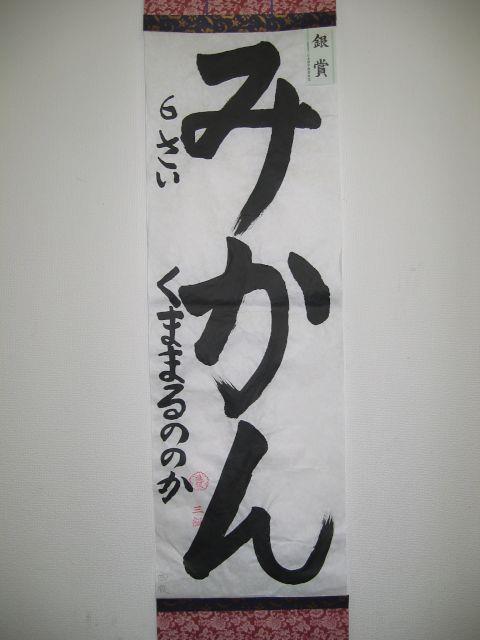 銀賞
みかん
6さい
くままるののか
三